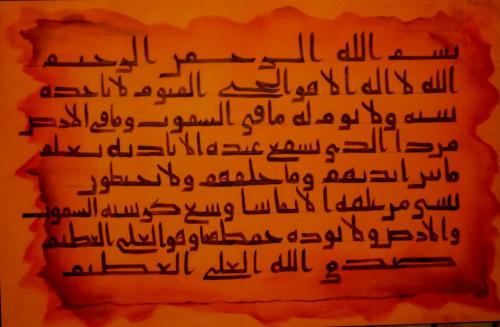 بسم الله الرحمن الرحيم
الله لا اله الا هو الحي القيوم لا تاخذه
سنه ولا نوم له ما في السموت وما في الارض
من ذا الذي يشفع عنده الا باذنه يعلم
ما بين ايديهم وما خلفهم ولا يحيطون
بشي من علمه الا بما شا وسع كرسيه السموت
والارض ولا يوده حفظهما وهو العلي العظيم
صدق الله العلي العظيم